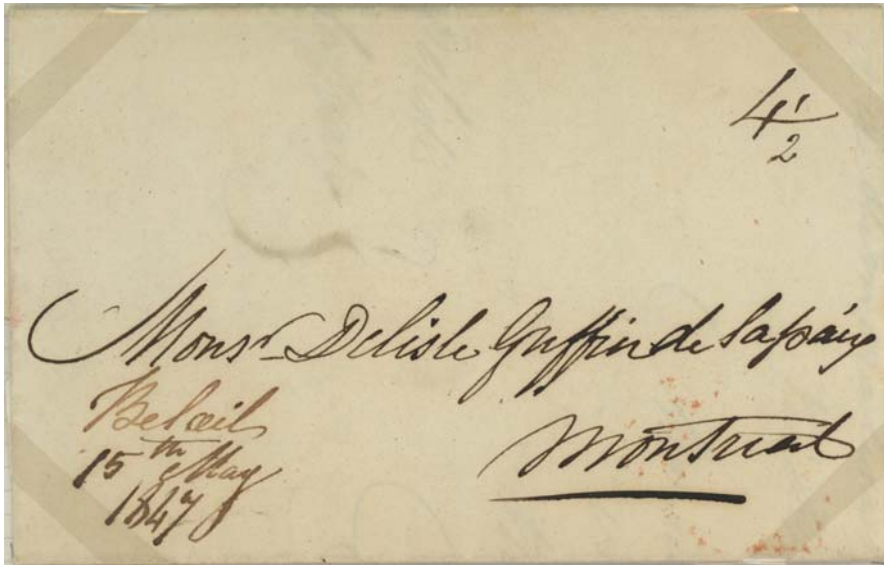 4 1/2
Monsr Delisle Greffier de la paix
Montreal
Belœil
15th May
1847